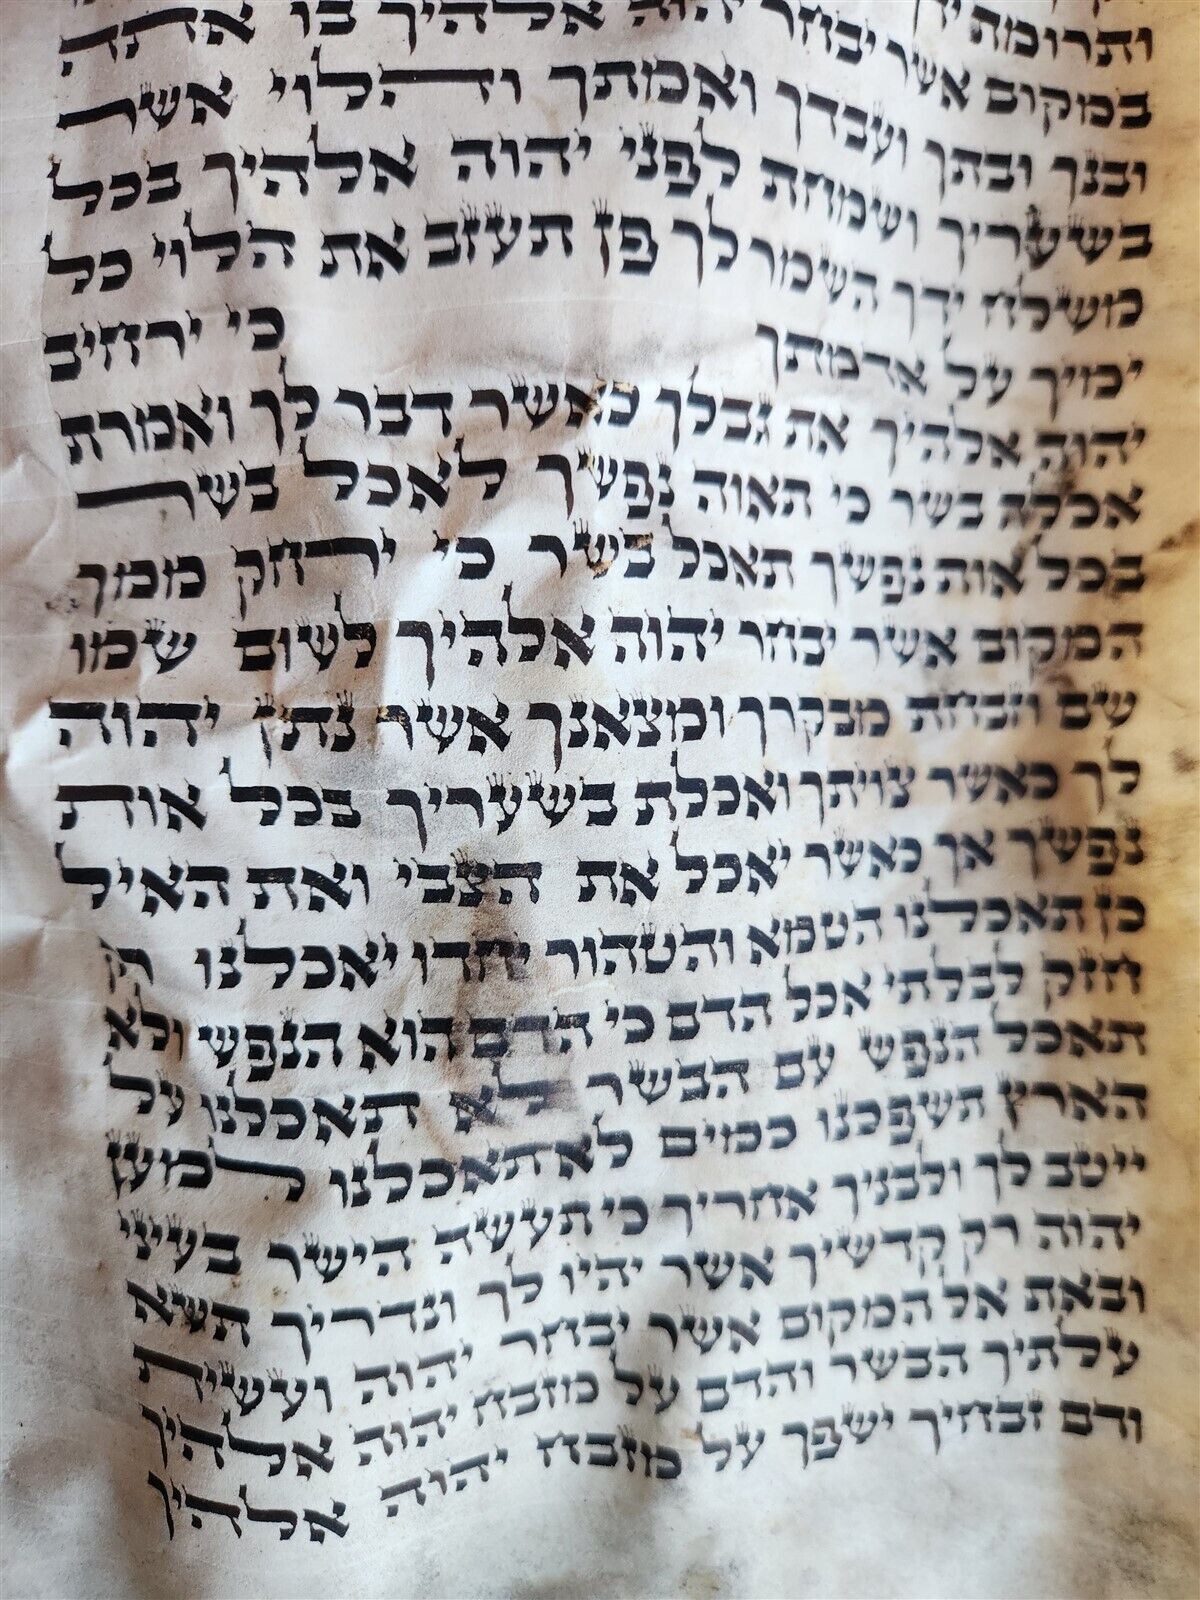 ותרומת
במקום אשר יבחר יהוה אלהיך בו אתה
ובנך ובתך ועבדך ואמתך והלוי אשר
בשעריך ושמחת לפני יהוה אלהיך בכל
משלח ידך השמר לך פן תעזב את הלוי כל
ימיך על אדמתך כי ירחיב
יהוה אלהיך את גבלך כאשר דבר לך ואמרת
אכלה בשר כי תאוה נפשך לאכל בשר
בכל אות נפשך תאכל בשר כי ירחק ממך
המקום אשר יבחר יהוה אלהיך לשום שמו
שם וזבחת מבקרך ומצאנך אשר נתן יהוה
לך כאשר צויתך ואכלת בשעריך בכל אות
נפשך אך כאשר יאכל את הצבי ואת האיל
כן תאכלנו הטמא והטהור יחדו יאכלנו רק
חזק לבלתי אכל הדם כי הדם הוא הנפש ולא
תאכל הנפש עם הבשר לא תאכלנו על
הארץ תשפכנו כמים לא תאכלנו למען
ייטב לך ולבניך אחריך כי תעשה הישר בעיני
יהוה רק קדשיך אשר יהיו לך ונדריך תשא
ובאת אל המקום אשר יבחר יהוה ועשית
עלתיך הבשר והדם על מזבח יהוה אלהיך
ודם זבחיך ישפך על מזבח יהוה אלהיך